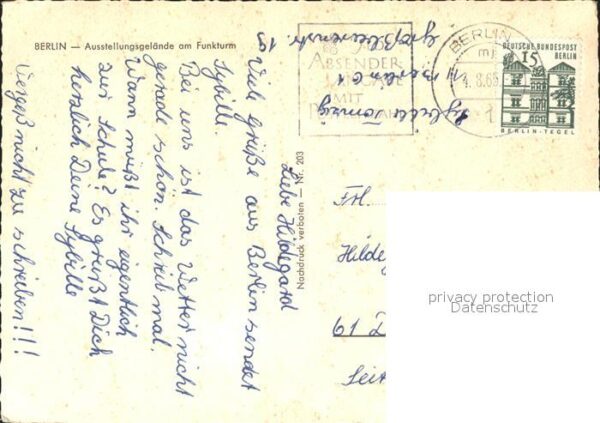 BERLIN — Ausstellungsgelände am Funkturm
ABSENDER
MIT
BERLIN
8.65
1
DEUTSCHE BUNDESPOST
BERLIN
15
BERLIN-TEGEL
Großbeerenstr.
Nachdruck verboten — Nr. 203
Liebe Hildegard
Viele Grüße aus Berlin sendet
Sybill.
Bei uns ist das Wetter nicht
gerade schön. Schreib mal,
Wann mußt ihr eigentlich
zur Schule? Es grüßt Dich
herzlich Deine Sybille
Vergeß nicht zu schreiben!!!
Frl.
Hilde
61 D
Seit
privacy protection
Datenschutz